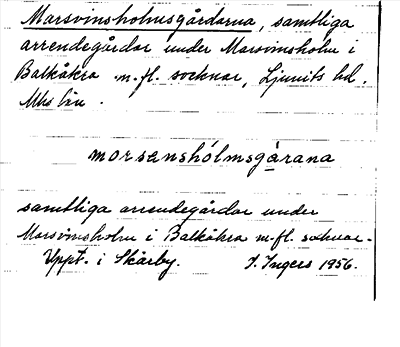 Marsvinsholmsgårdarna, samtliga
arrendegårdar under Marsvinsholm i
Balkåkra m.fl. socknar, Ljunits hd.
Mhs län.
morsanshólmsgårana
samtliga arrendegårdar under
Marsvinsholm i Balkåkra m.fl. socknar.
Uppt. i Skårby. I. Ingers 1956.